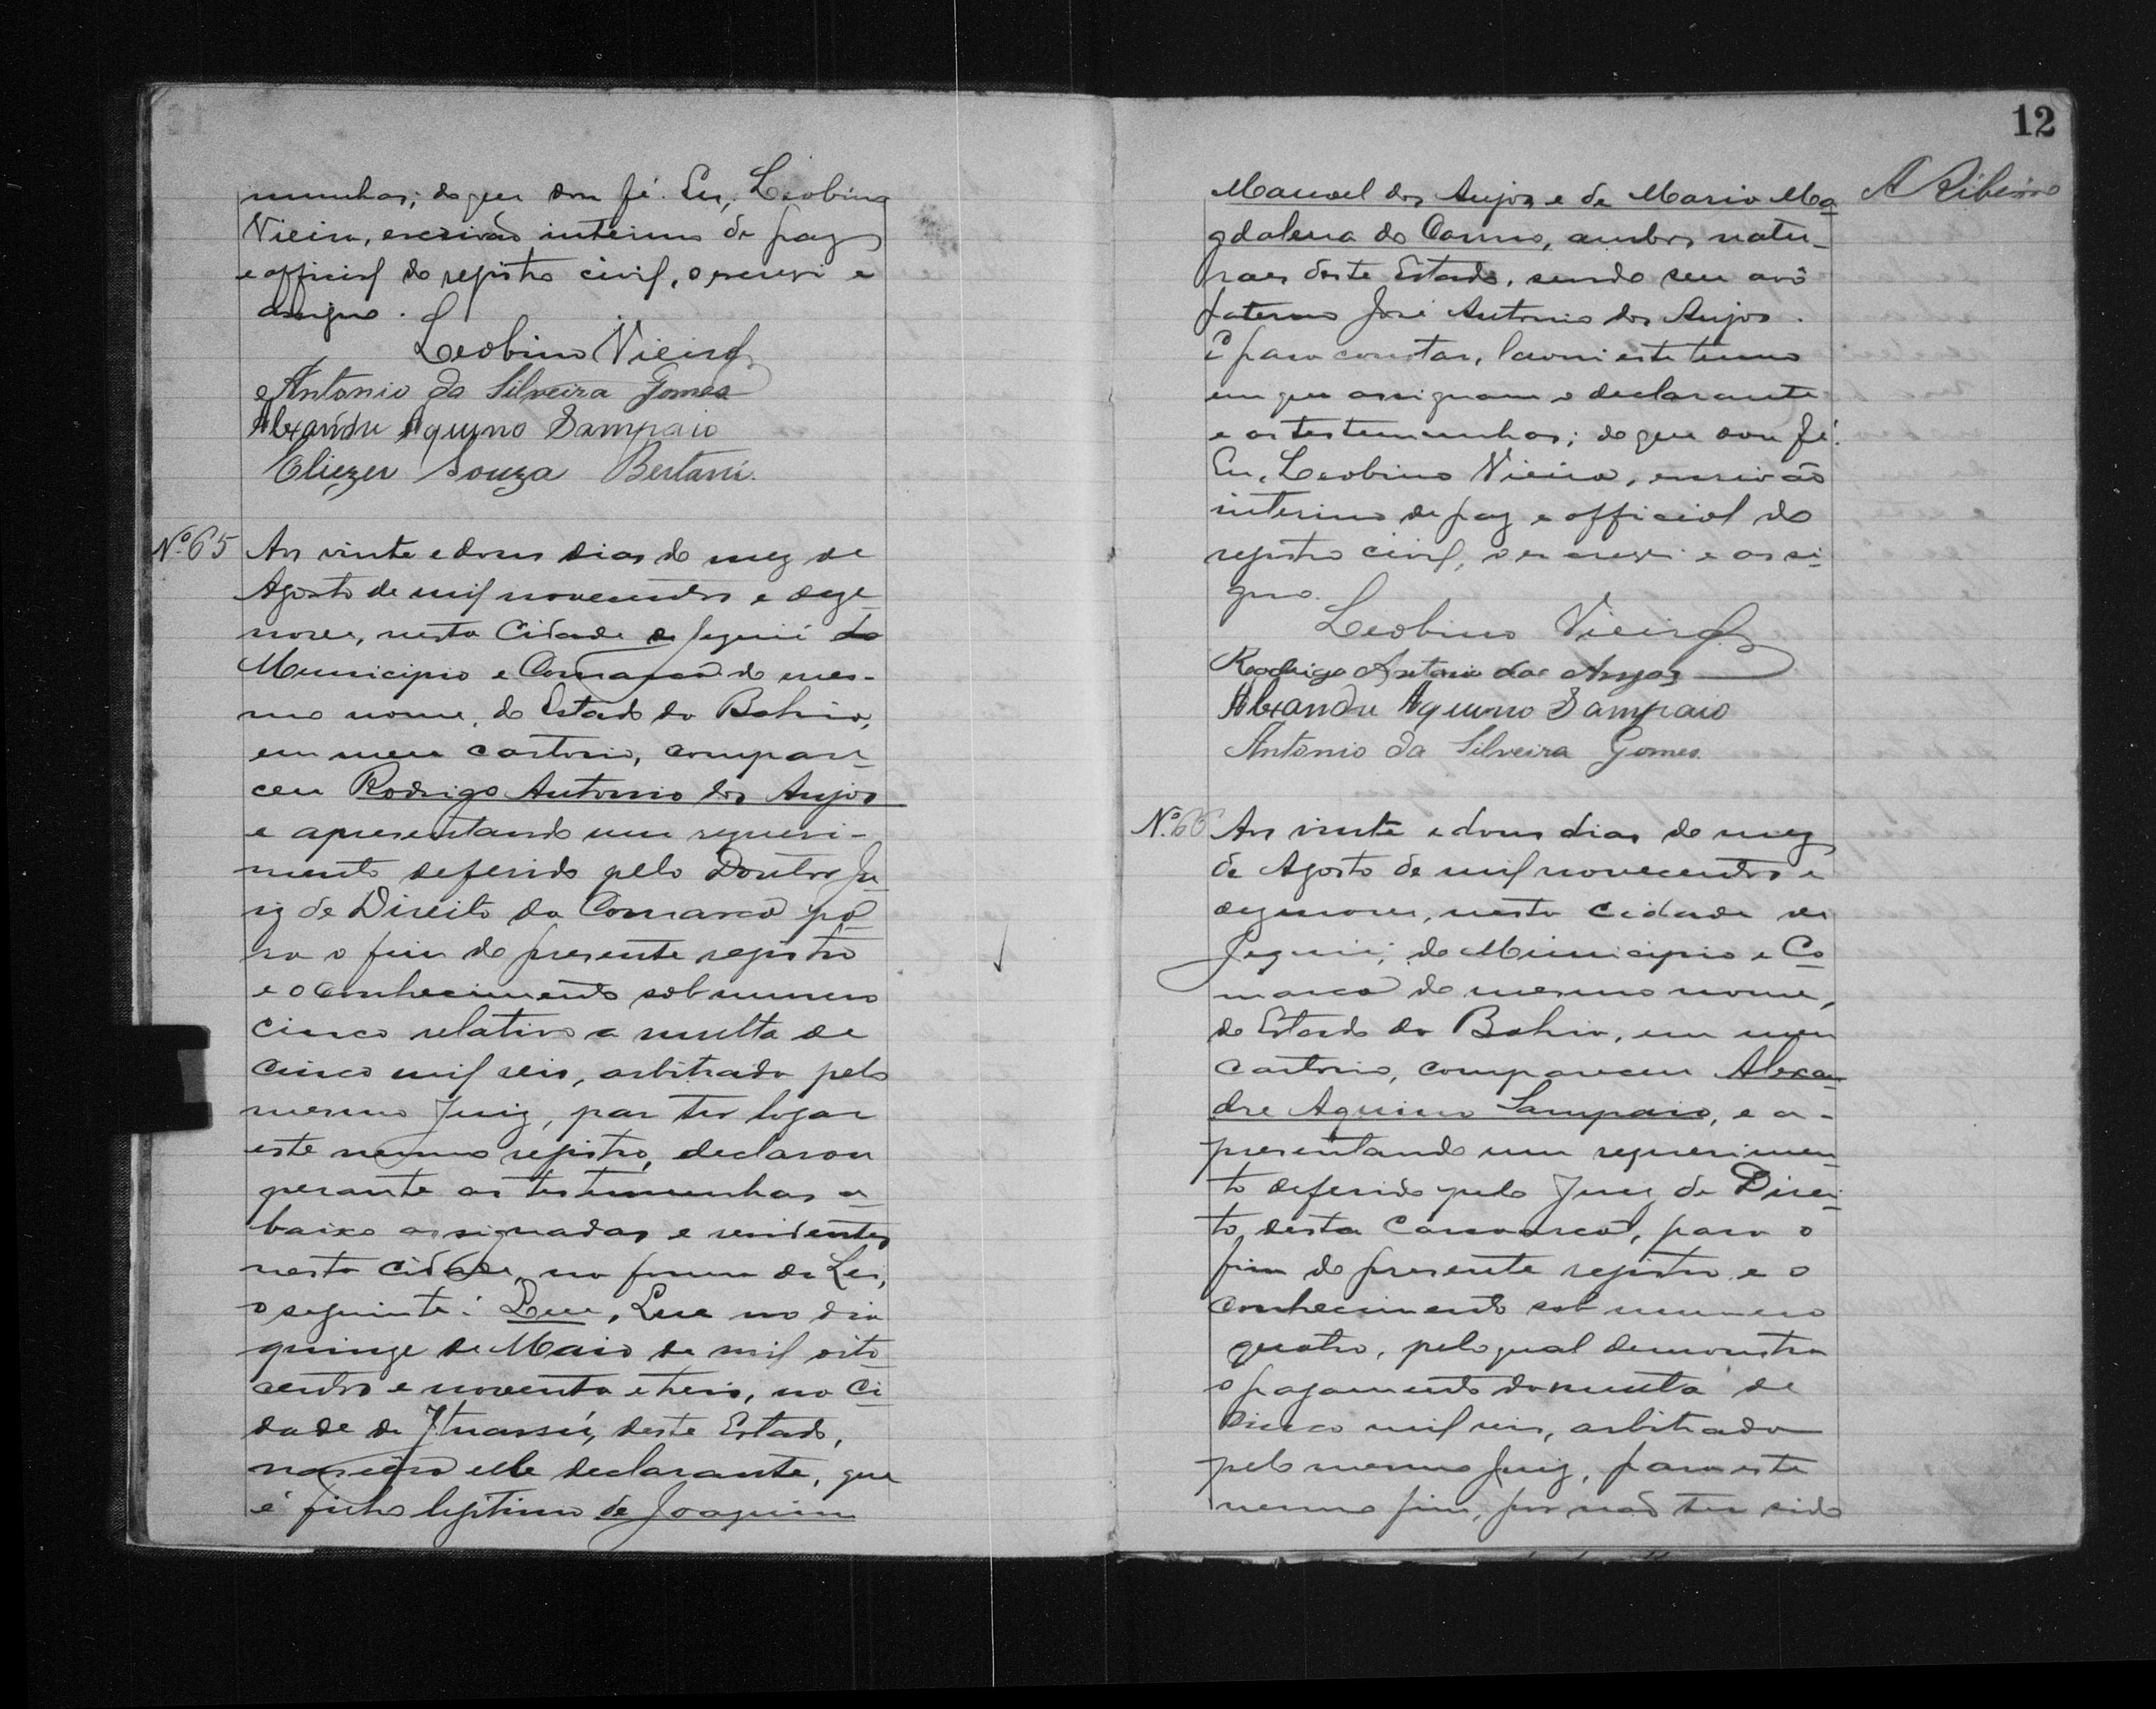 munhas; do que dou fé. Eu, Leobino
Vieira, escrivão interino de paz
e official do registro civil, o escrevi e
assigno.
Leobino Vieira
Antonio da Silveira Gomes
Alexandre Aquino Sampaio
Eliezer Souza Bertani.
Nº 65 Aos vinte e dous dias do mez de
Agosto de mil novecentos e deze-
nove, nesta Cidade de Jequié do
Municipio e Comarca do mes-
mo nome, do Estado da Bahia,
em meu cartorio, compare-
ceu Rodrigo Antonio dos Anjos
e apresentando um requeri-
mento deferido pelo Doutor Ju-
iz de Direito da Comarca pa-
ra o fim do presente registro
e o conhecimento sob numero
cinco relativo a multa de
cinco mil reis, arbitrada pelo
mesmo Juiz, par ter logar
este mesmo registro, declarou
perante as testemunhas a-
baixo assignadas e residentes
nesta cidade, na forma da Lei,
o seguinte: Que, Que no dia
quinze de Maio de mil oito-
centos e noventa e treis, na Ci-
dade de Ituassú, deste Estado,
nasceu elle declarante, que
é filho legitimo de Joaquim
12
A Ribeiro
Manoel dos Anjos e de Maria Ma-
gdalena do Carmo, ambos natu-
raes deste Estado, sendo seu avô
paterno José Antonio dos Anjos.
E para constar, lavrei este termo
em que assignam o declarante
e as testemunhas; do que dou fé.
Eu, Leobino Vieira, escrivão
interino de paz e official do
registro civil, o escrevi e assi-
gno.
Leobino Vieira
Rodrigo Antonio dos Anjos
Alexandre Aquino Sampaio
Antonio da Silveira Gomes.
Nº 66 Aos vinte e dous dias do mez
de Agosto de mil novecentos e
dezenove, nesta Cidade de
Jequié, do Municipio e Co-
marca do mesmo nome,
do Estado da Bahia, em meu
cartorio, compareceu Alexan-
dre Aquino Sampaio, e a-
presentando um requerimen-
to deferido pelo Juiz de Direi-
to, desta Comarca, para o
fim do presente registro e o
conhecimento sob numero
quatro, pelo qual demonstra
o pagamento da multa de
cinco mil reis, arbitrada
pelo mesmo Juiz, para este
mesmo fim, por não ter sido